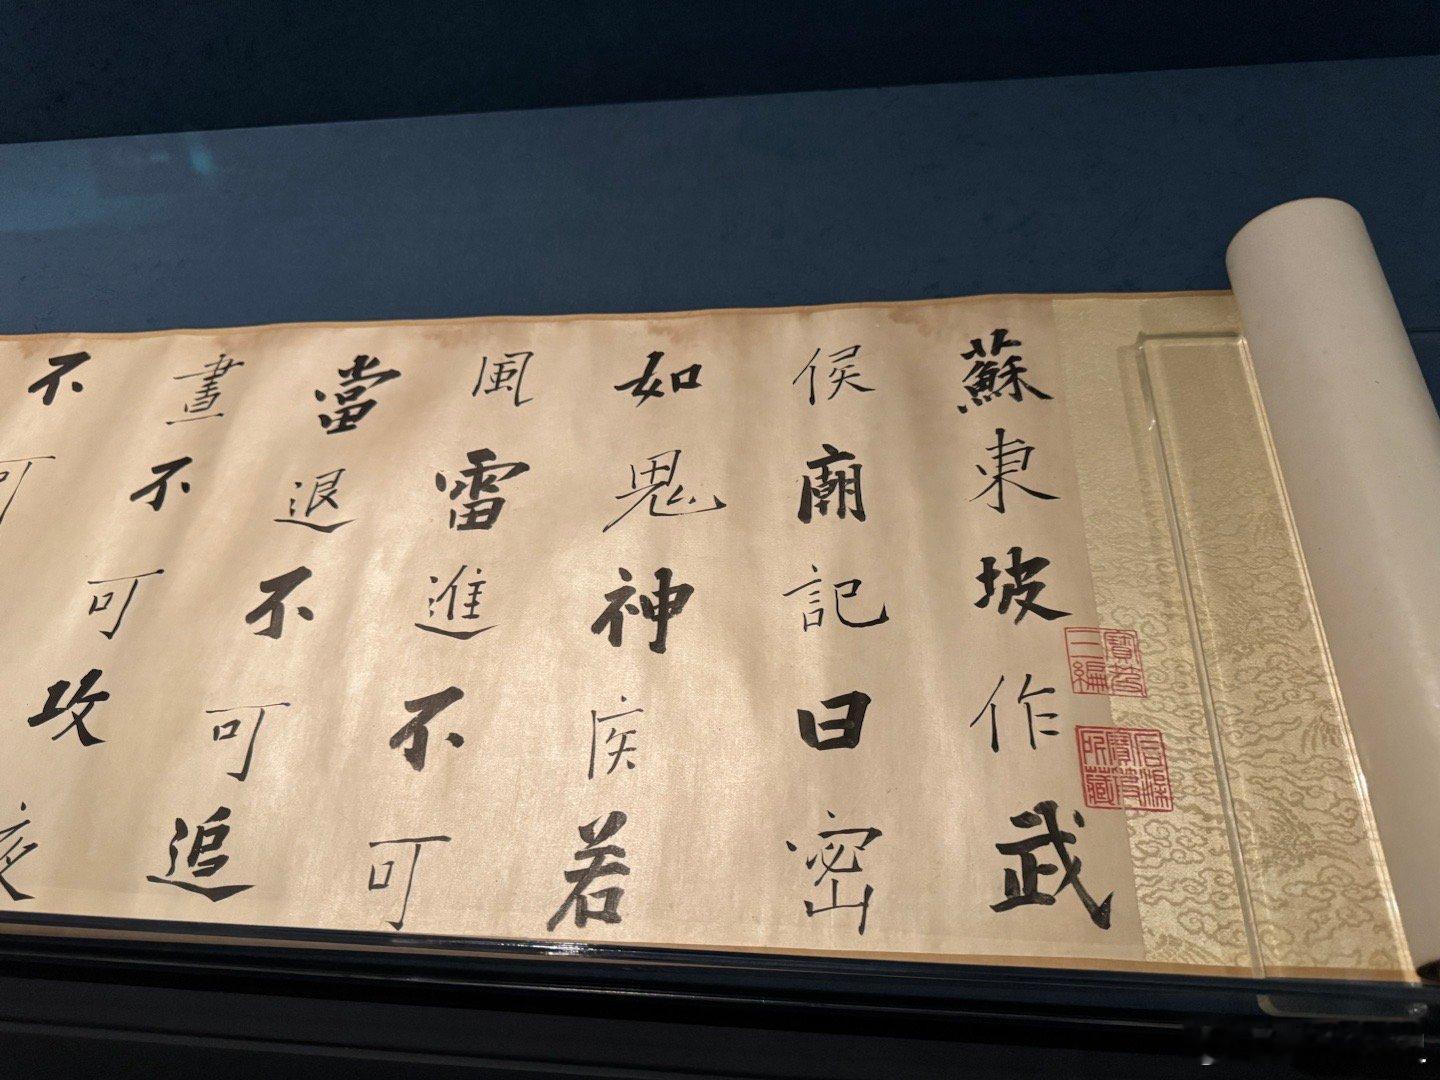 蘇東坡作武
侯廟記曰密
如鬼神疾若
風雷進不可
當退不可追
晝不可攻夜
不可
寶笈三編
石渠寶笈所藏